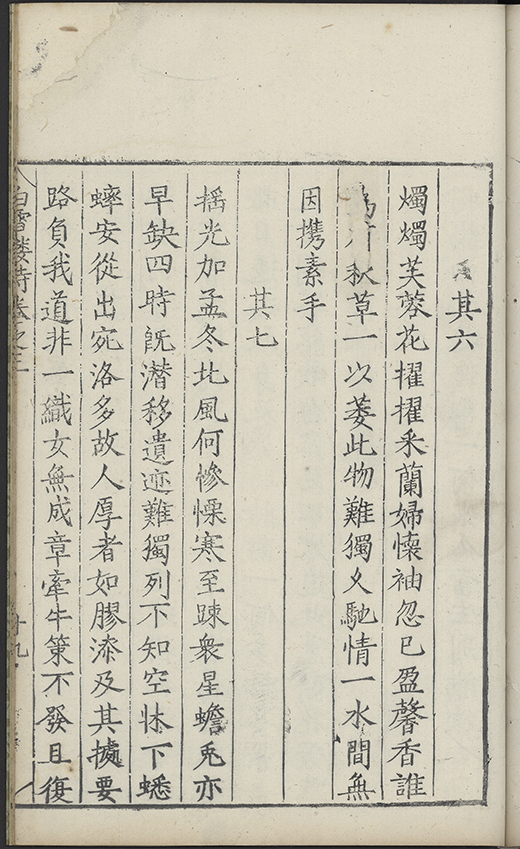 其六
燭燭芙蓉花擢擢采蘭婦懷袖忽已盈馨香誰
秋草一以萎此物難獨久馳情一水間無
因携素手
其七
揺光加孟冬北風何慘慄寒至踈衆星蟾兎亦
早缺四時旣潛移遺迹難獨列不知空牀下蟋
蟀安從出宛洛多故人厚者如膠漆及其據要
路負我道非一織女無成章牽牛策不發且復
白雪樓詩卷之三
十九